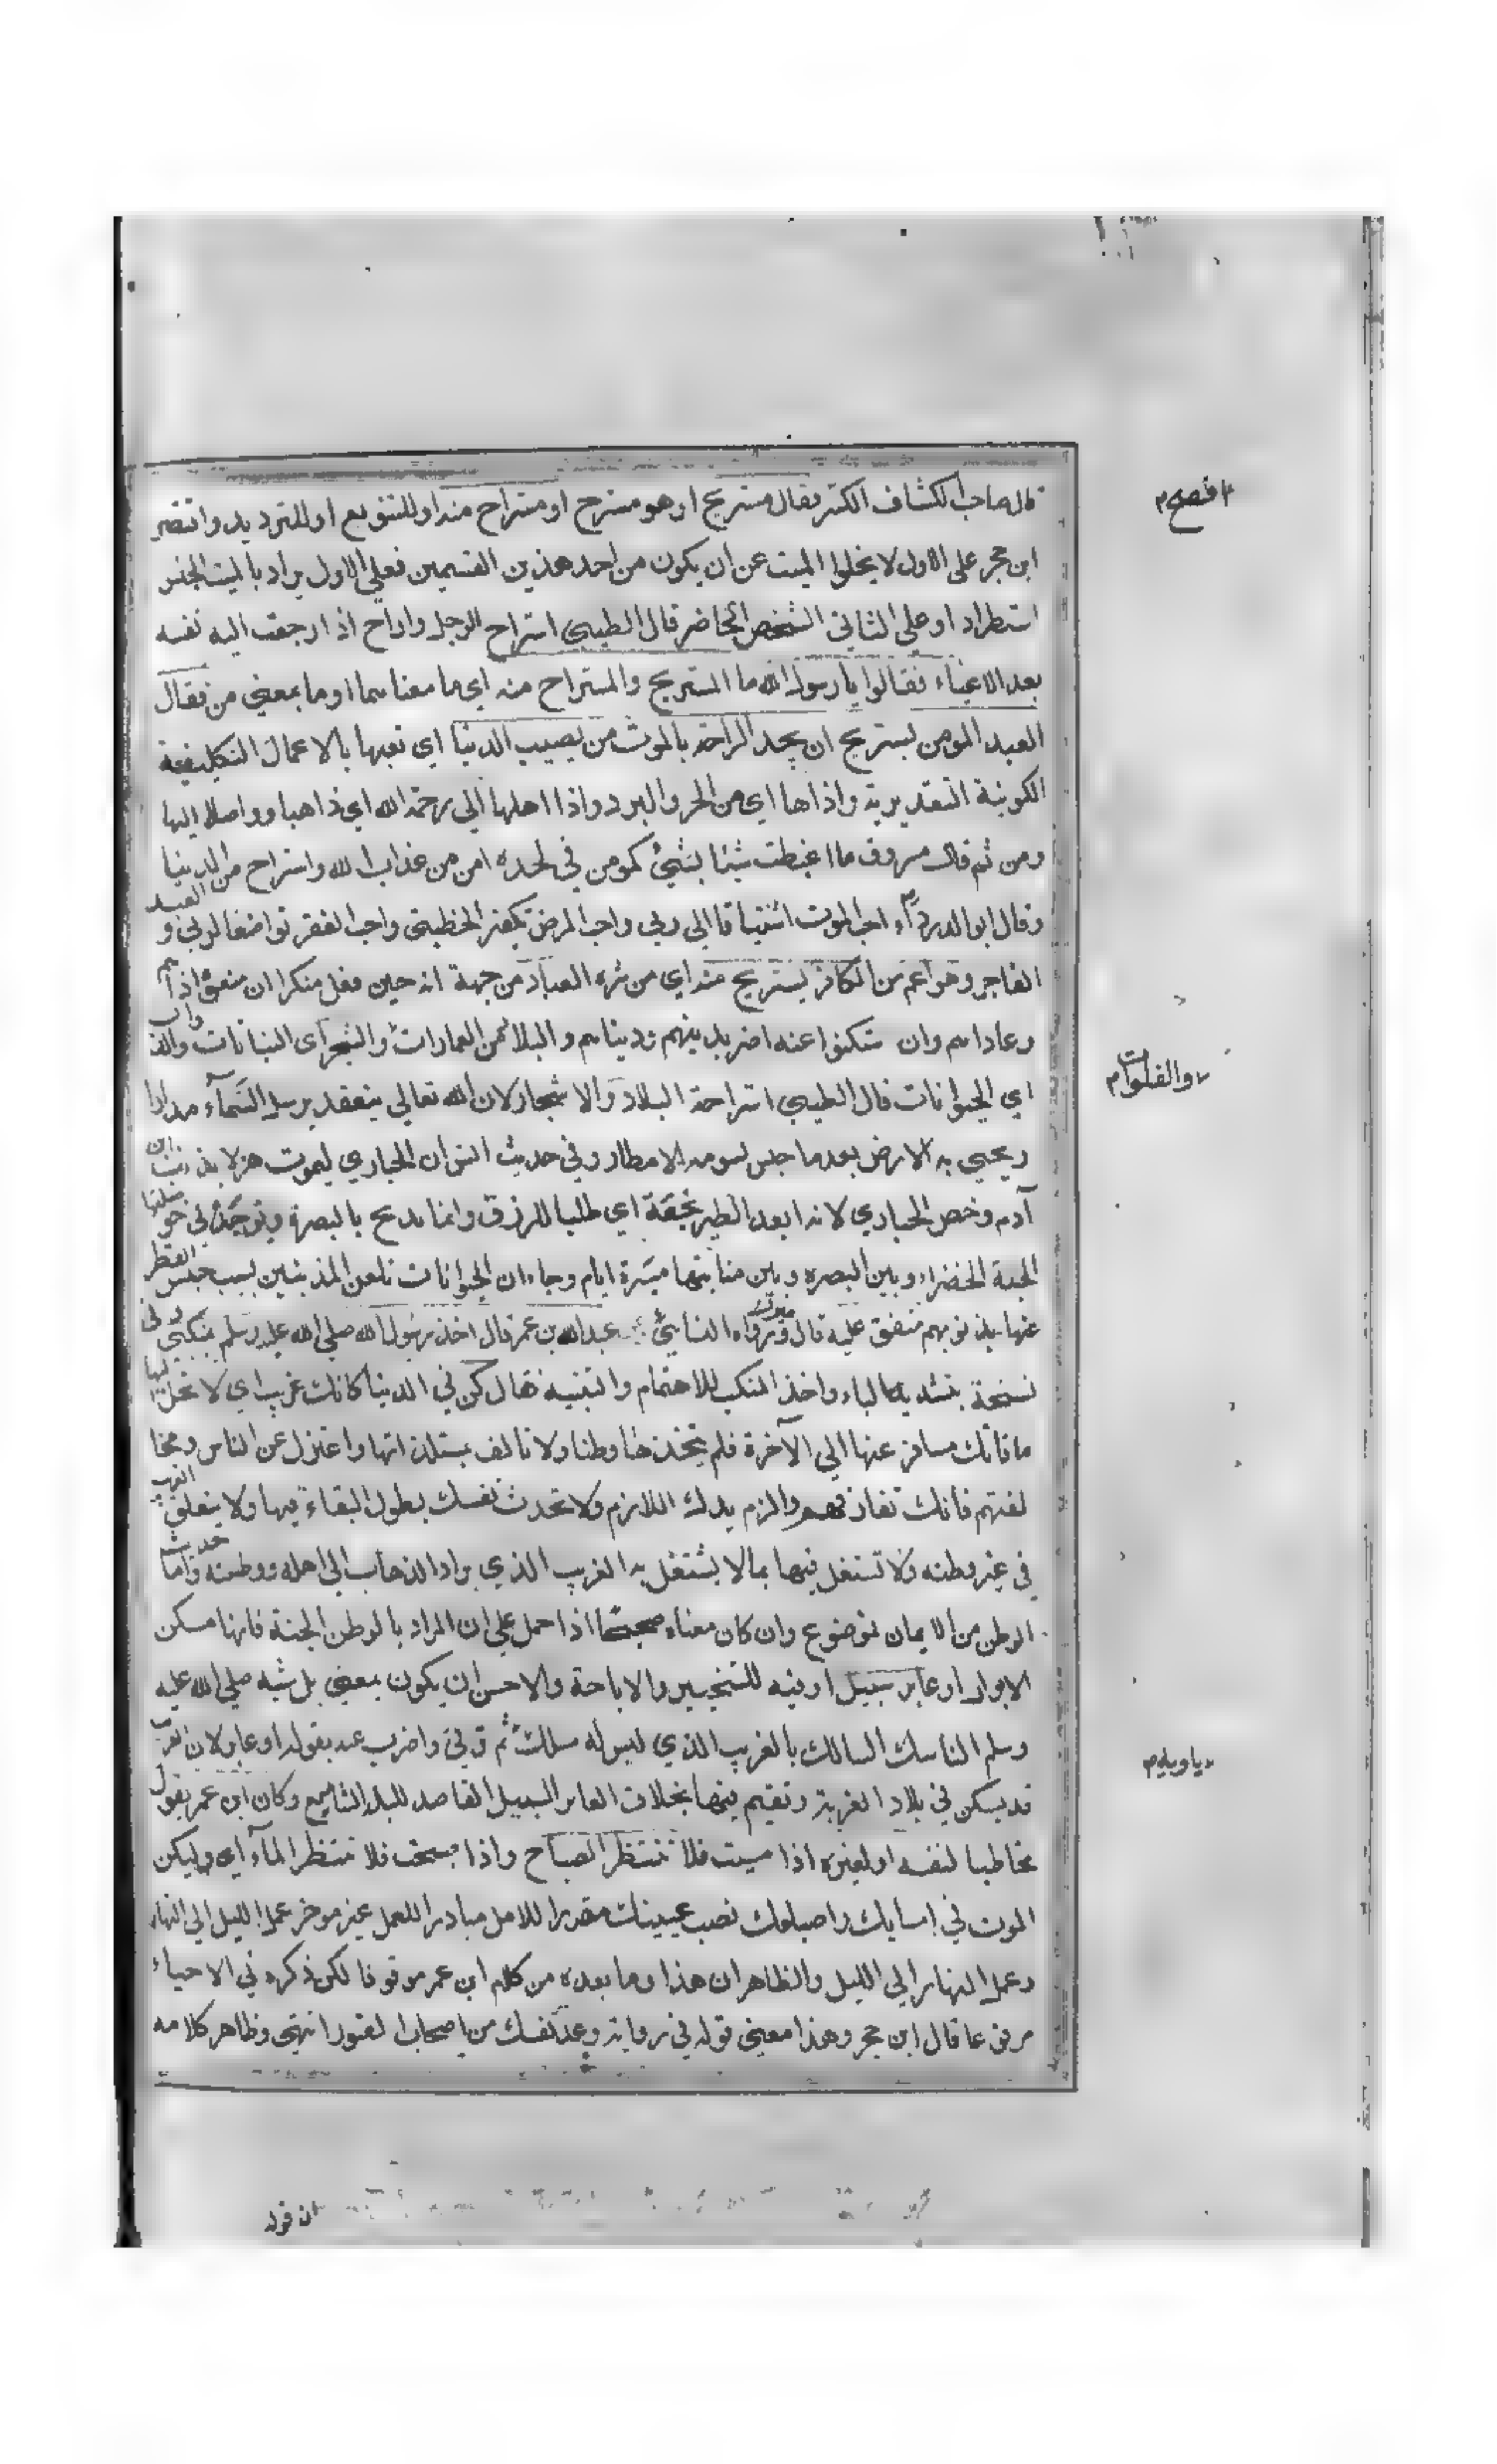 قال صاحب الكشاف الكسر فقال مستريح اي هو مسترح او مستراح منه او للتنويع او للترديد واقتصر
ابن حجر على الاول لا يخلوا الميت عن ان يكون من احد هذين القسمين فعلي الاول يراد بالميت الجنس
استطرادا وعلى الثاني الشخص الحاضر قال الطيبي استراح الرجل واراح اذا رجعت اليه نفسه
بعد الاعياء فقالوا يا رسول الله ما المستريح والمستراح منه اي ما معناهما او ما بمعني من فقال
العبد المومن يستريح ان يجد الراحة بالموت من نصيب الدنيا اي تعبها بالاعمال التكليفية
الكونية التقديرية واذاها اي من الحر والبرد واذا اهلها الي رحمة الله اي ذاهبا وواصلا اليها
ومن ثم قال مسروق ما اغبطت شيئا بشيئ كمومن في لحده امن من عذاب الله واستراح من الدنيا
وقال ابو الدرداء احب الموت اشتياقا الي ربي واحب المرض تكفير الخطيئتي واحب الفقر تواضعا لربي و العبد
الفاجر وهو اعم من الكافر يستريح منه اي من شره العباد من جهة انه حين فعل منكرا ان منعوه اذاهم
وعاداهم وان سكتوا عنه اضر بدينهم ودنياهم والبلاد من العمارات والشجر اى النباتات والدواب
اي الحيوانات قال الطيبي استراحة البلاد والاشجار لان الله تعالي بفقده يرسل السماء مدرارا
ويحيي به الارض بعد ما حبس لسومه الامطار وفي حديث انس ان الحباري ليموت هزلا بذنب ابن
آدم وخص الحباري لانه ابعد الطير نجعة اي طلبا للرزق وانما يذبح بالبصرة ويوجد في حوصلتها
الحبة الخضراء وبين البصره وبين منابتها مسيرة ايام وجاء ان الحيوانات تلعن المذنبين بسبب حبس القطر
عنها بذنوبهم متفق عليه قال ميرك ورواه النسايئ عبد الله بن عمر قال اخذ رسول الله صلي الله عليه وسلم بمنكبي وفي
نسخة بتشديد الياء واخذ المنكب للاهتمام والتنبيه فقال كن في الدنيا كانك غريب اي لا تمل اليها
فانك مسافر عنها الي الآخرة فلم تتخذها وطنا ولا تالف بمستلذاتها واعتزل عن الناس ومخا
لفتهم فانك تفارقهم والزم يدك اللازم ولا تحدث نفسك بطول البقاء فيها ولا يتعلق الغريب
في غير وطنه ولا تشتغل فيها بما لا يشتغل به الغريب الذي يراد الذهاب الي اهله ووطنه واما حديث
الوطن من الايمان فوضوع وان كان معناه صحيحا اذا حمل علي ان المراد بالوطن الجنة فانها مسكن
الابرار او عابر سبيل او فيه للتخيير والاباحة والاحسن ان يكون بمعني بل شبه صلي الله عليه
وسلم الناسك السالك بالغريب الذي ليس له مسلك ثم ترقي واضرب عنه بقوله او عابر لان الغريب
قد يسكن في بلاد الغربة وتقيم فيها بخلاف العابر السبيل القاصد للبلد الشاسع وكان ابن عمر يقول
مخاطبا لنفسه او لغيره اذا مسيت فلا تنتظر الصباح واذا صبحت فلا تنتظر المآء اي وليكن
الموت في امسايك واصباحك نصب عينيك مقصرا للامل مبادرا للعمل غير موخر عمل الليل الي النهار
وعمل النهار الي الليل والظاهر ان هذا وما بعده من كلام ابن عمر موقوفا لكن ذكره في الاحياء
مرفوعا قال ابن حجر وهذا معني قوله في رواية وعد نفسك من اصحاب القبور انتهى وظاهر كلامه
افصح م
والفلوات م
ياويه م
ان قوله